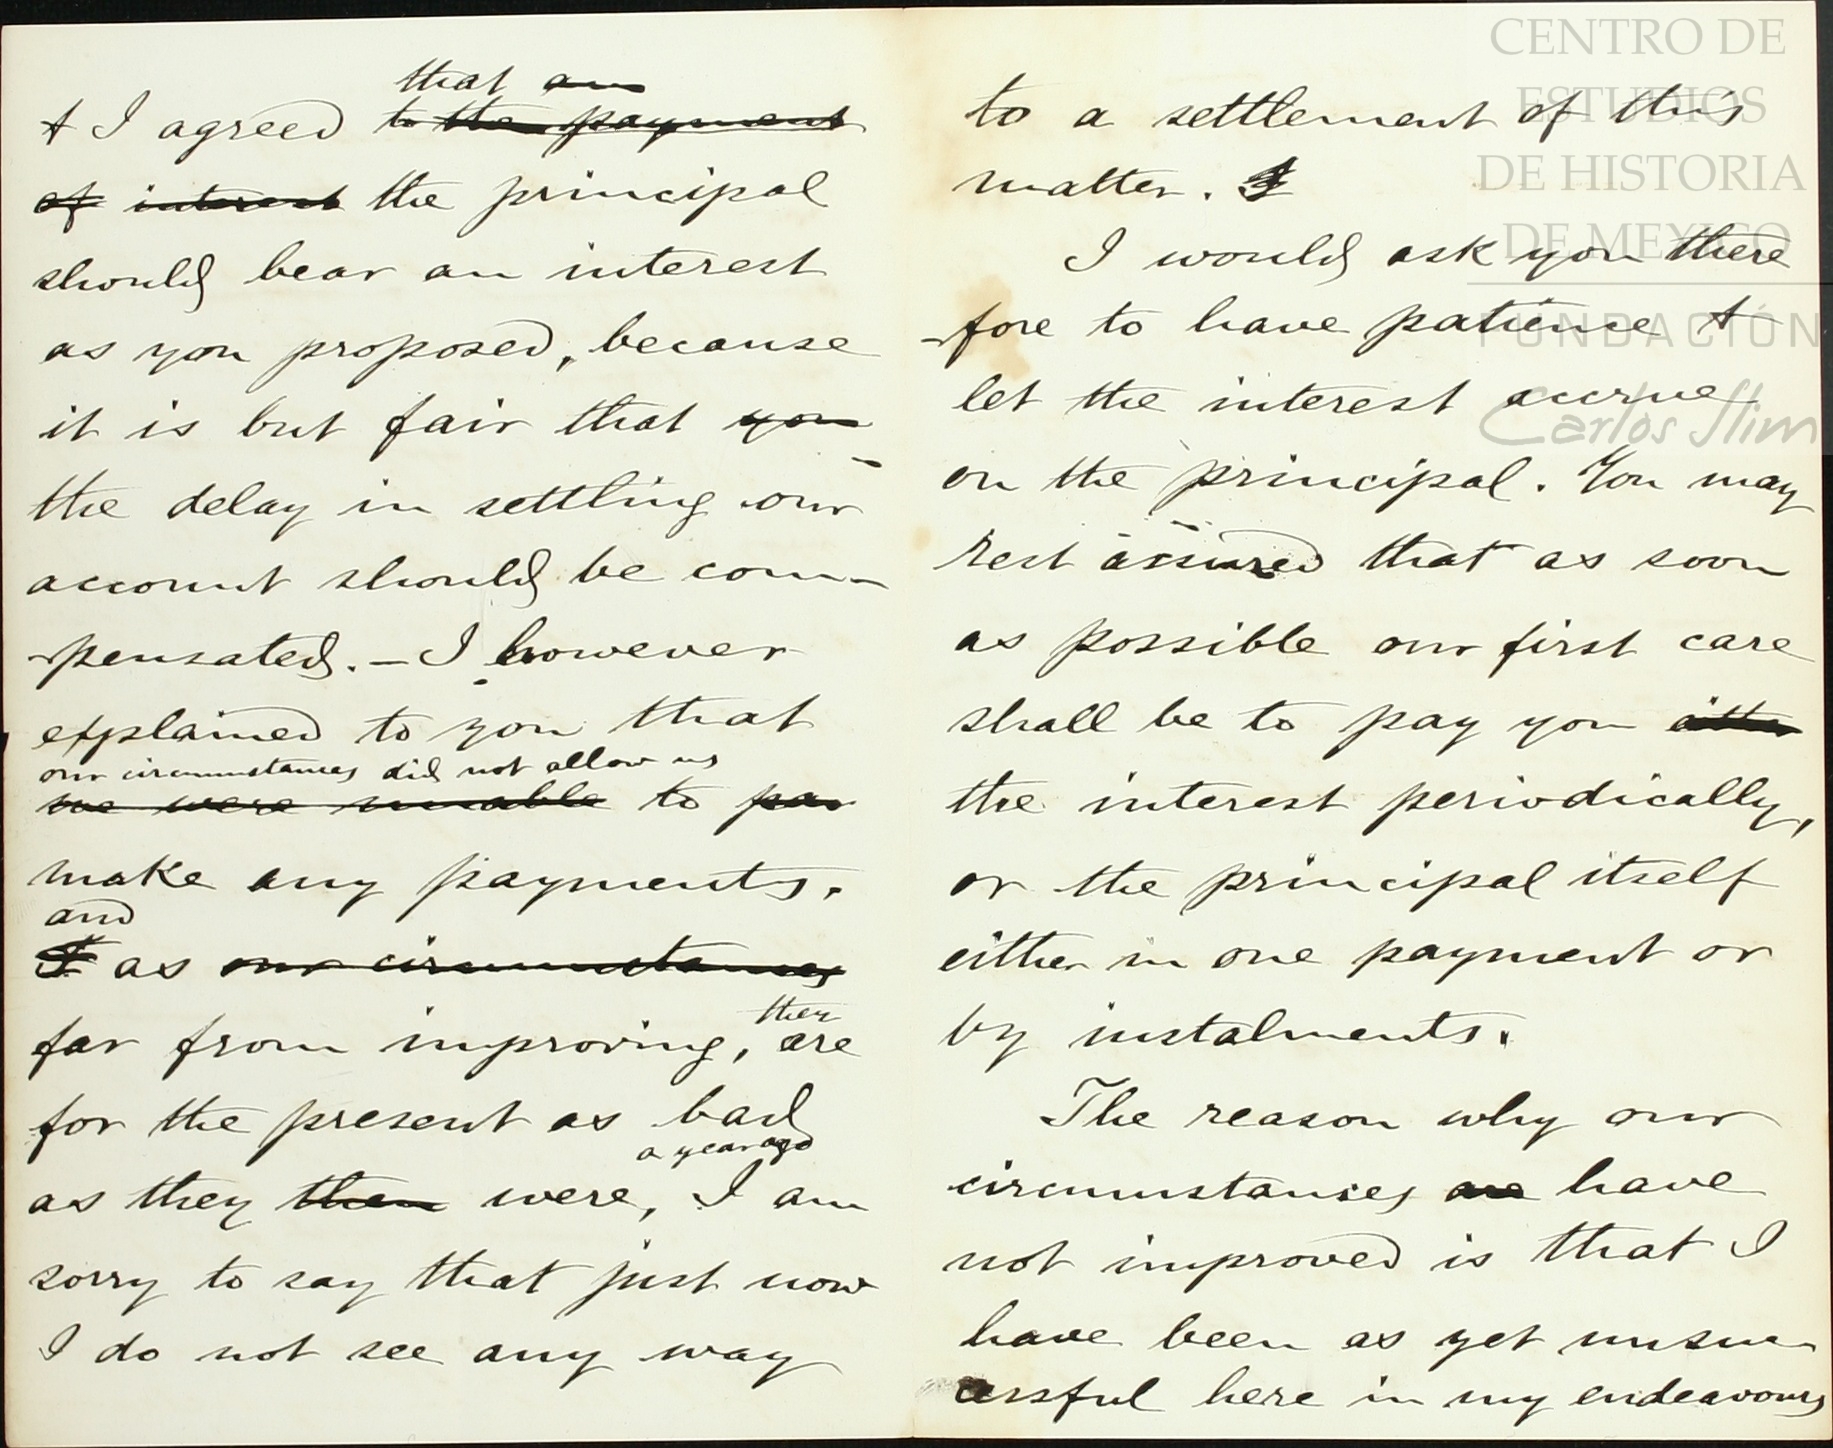 that ~~an~~
& I agreed ~~to the payment~~
~~of interest~~ the principal
should bear an interest
as you proposed, because
it is but fair that ~~you~~
the delay in settling our
account should be com-
-pensated. - I however
explained to you that
our circumstances did not allow us
~~we were unable~~ to ~~pa~~
make any payments.
and
~~I~~ as ~~our circumstances~~
they
far from improving, are
for the present as bad
a year ago
as they ~~then~~ were, I am
sorry to say that just now
I do not see any way
to a settlement of this
matter. ~~I~~
I would ask you there
-fore to have patience &
let the interest accrue
on the principal. You may
rest assured that as soon
as possible our first care
shall be to pay you ~~either~~
the interest periodically,
or the principal itself
either in one payment or
by instalments.
The reason why our
circumstances ~~are~~ have
not improved is that I
have been as yet unsuc-
cessful here in my endeavours
CENTRO DE
ESTUDIOS
DE HISTORIA
DE MEXICO
FUNDACIÓN
Carlos Slim